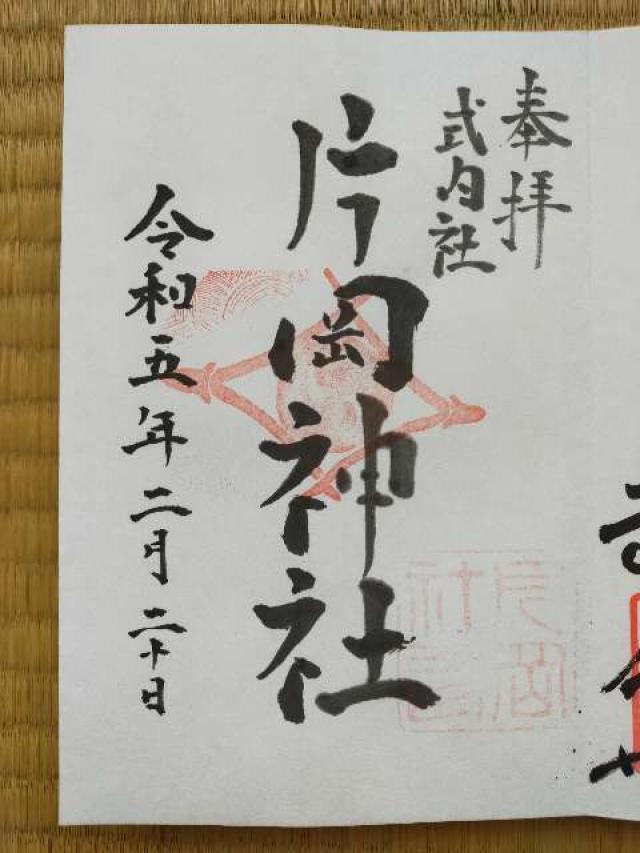 奉拝
式内社
片岡神社
令和五年二月二十日